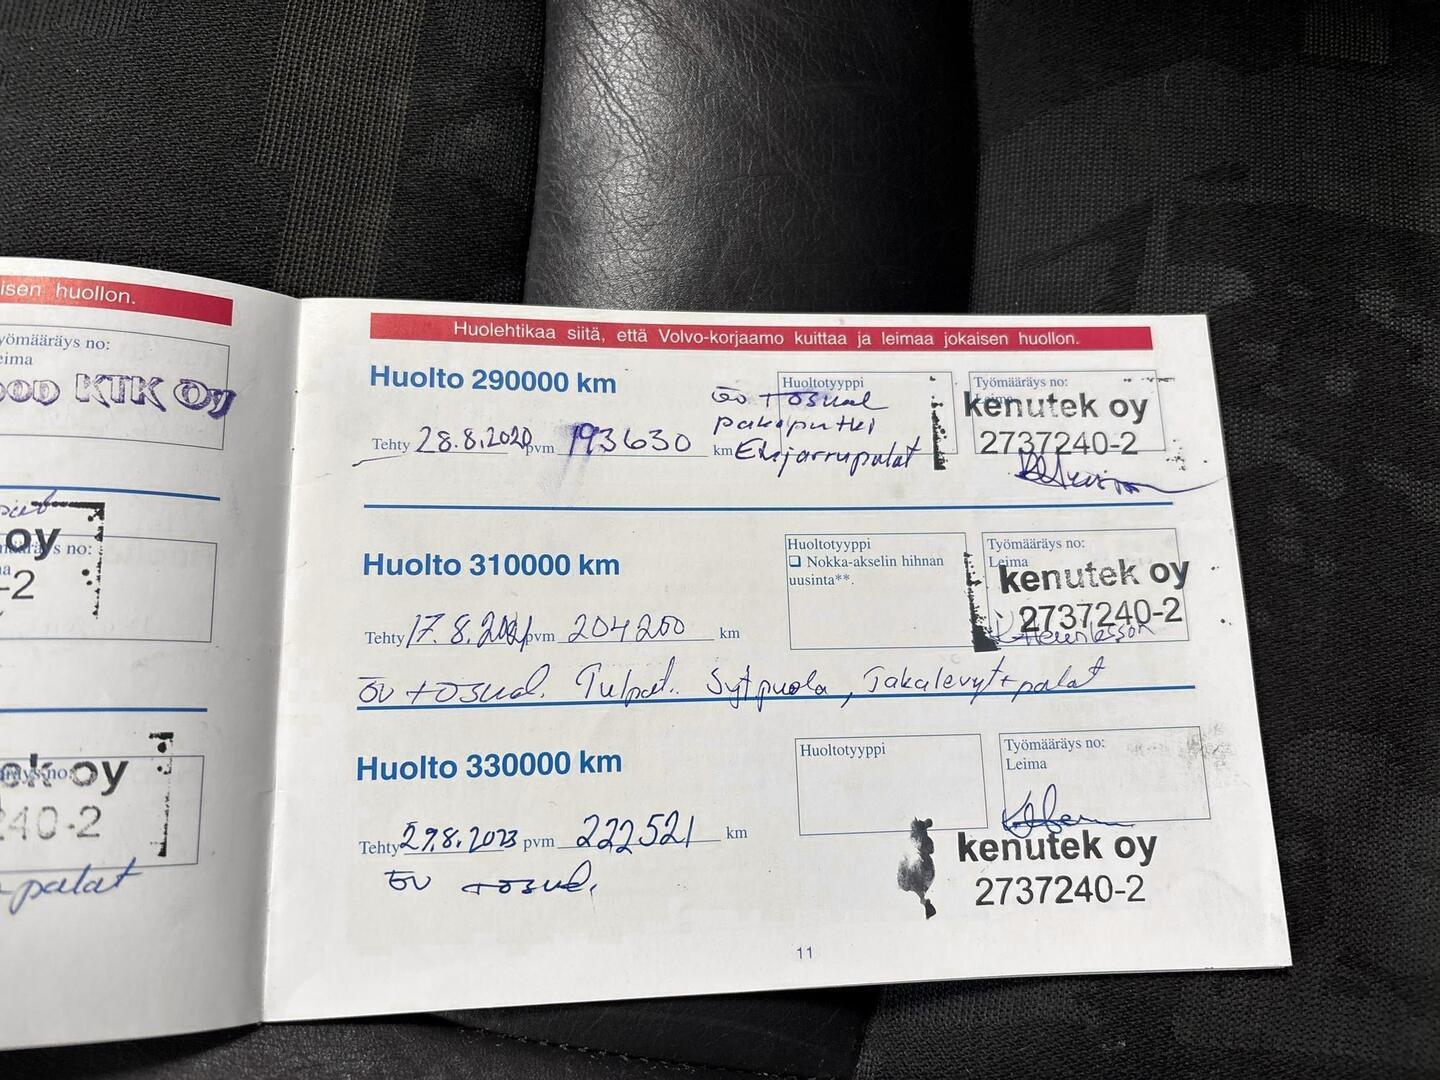 isen huollon.
yömääräys no:
eima
OOD KTK Oy
oy
määräys no:
-2
ek oy
240-2
palat
Huolehtikaa siitä, että Volvo-korjaamo kuittaa ja leimaa jokaisen huollon.
Huolto 290000 km
Huoltotyyppi
Työmääräys no:
Leima
öv + ösuod
pakoputki
Etujarrupalat
Tehty 28.8.2020 pvm 193630 km
kenutek oy
2737240-2
Huolto 310000 km
Huoltotyyppi
❑ Nokka-akselin hihnan
uusinta**.
Työmääräys no:
Leima
kenutek oy
2737240-2
Tehty 17.8.2021 pvm 204200 km
öv + ösuod. Tulpat. Sytpuola, Takalevyt+palat
Huolto 330000 km
Huoltotyyppi
Työmääräys no:
Leima
Tehty 29.8.2023 pvm 222521 km
öv + ösuod.
kenutek oy
2737240-2
11